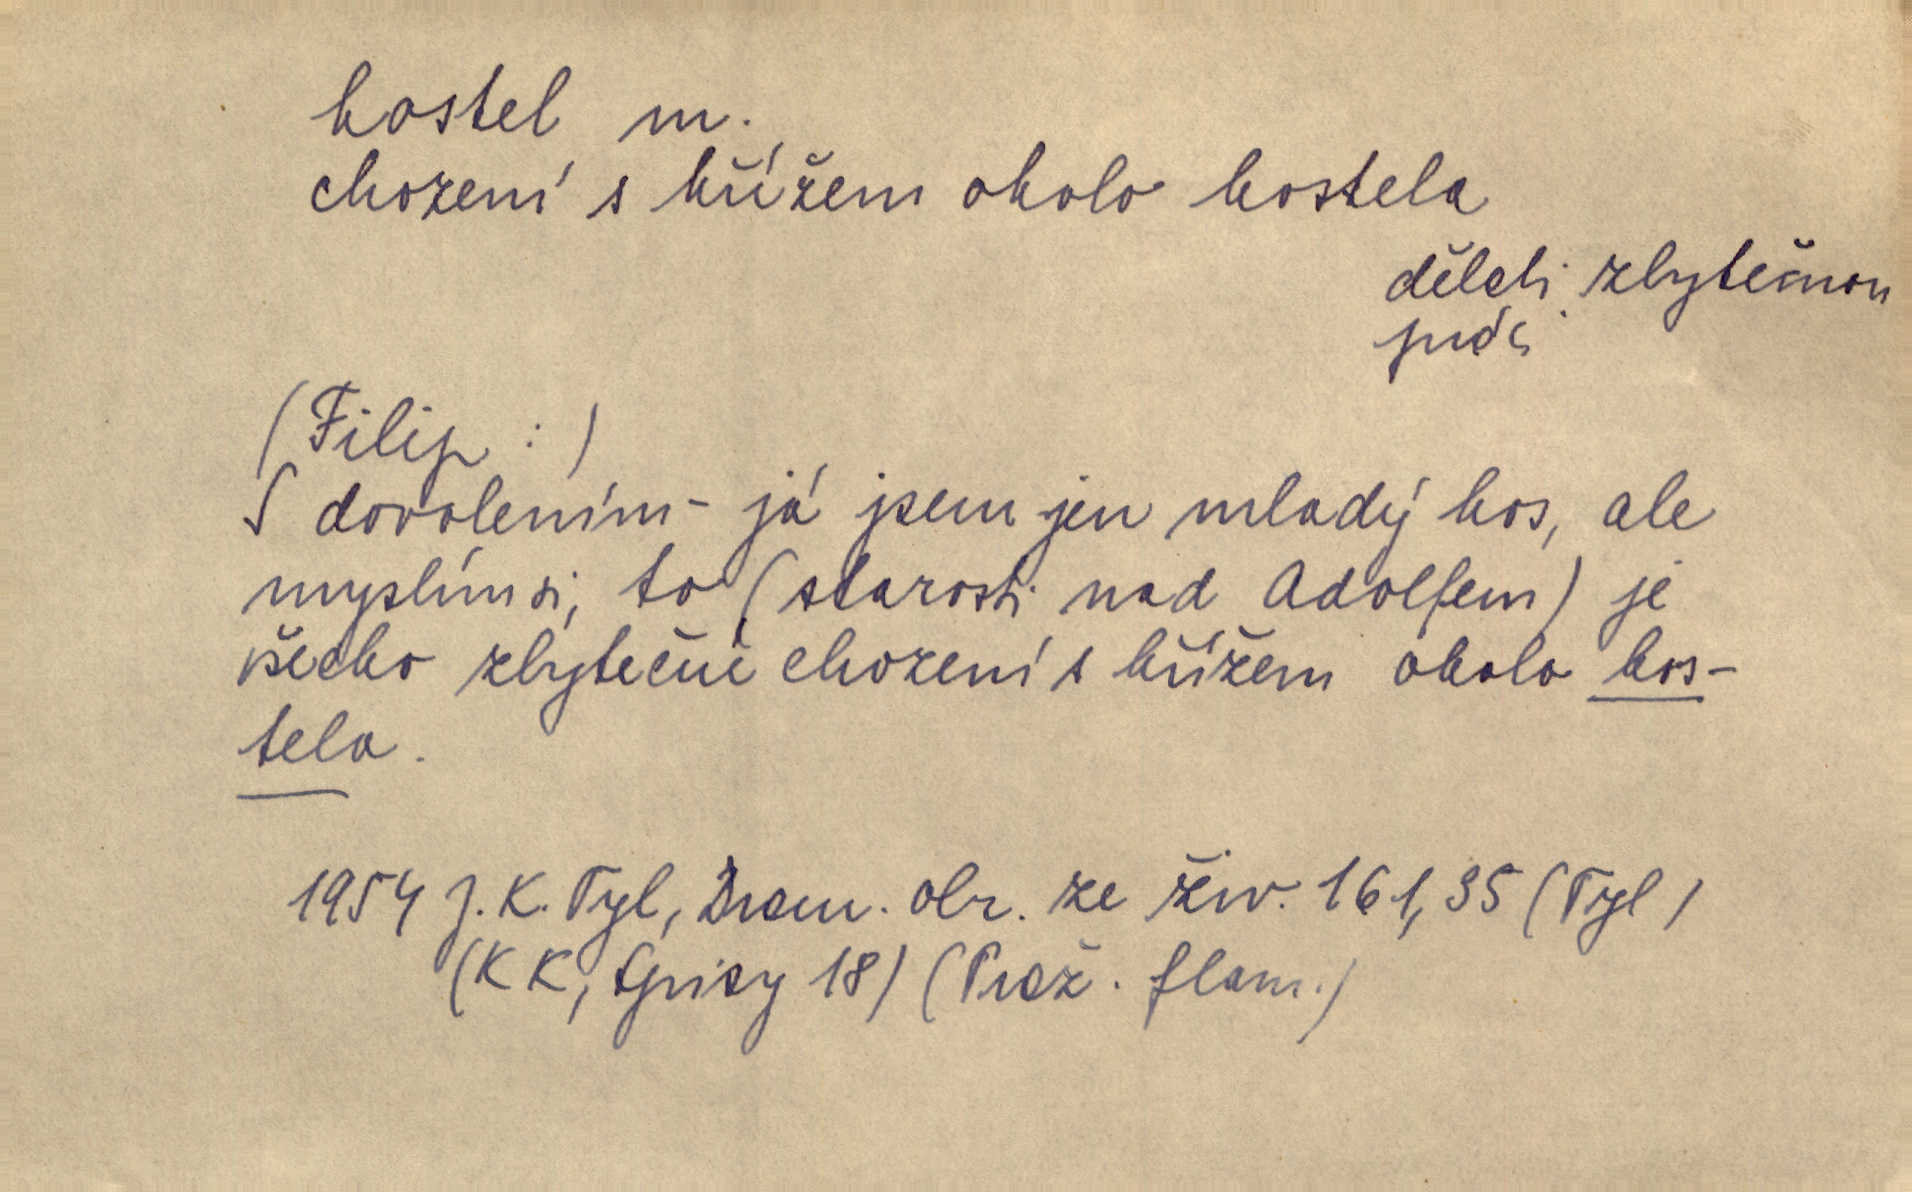 kostel m.
chození s křížem okolo kostela
dělati zbytečnou
práci
(Filip :)
S dovolením - já jsem jen mladý kos, ale
myslím si, to (starosti nad Adolfem) je
všecko zbytečné chození s křížem okolo kos-
tela.
1954 J. K. Tyl, Dram. obr. ze živ. 161,35 (Tyl)
(KK, Spisy 18) (Praž. flam.)